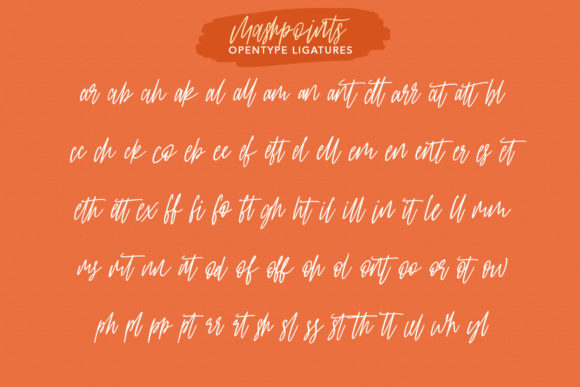 Mashpoints
OPENTYPE LIGATURES
ar ab ah ak al all am an ant dtt arr at att bl
cc ch ck co eb ee ef eft el ell em en ent er es et
eth ett ex ff fi fo ft gh ht il ill in it le ll mm
nt nn ot od of off oh ol ont oo or ot ow
ph pl pp pt rr rt sh sl ss st th tt ul wh yl